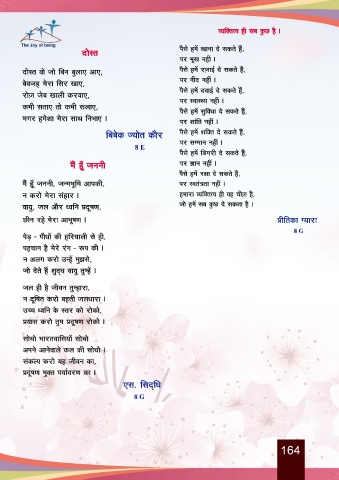 The Joy of being
दोस्त
दोस्त वो जो बिन बुलाए आए,
बेवजह मेरा सिर खाए,
रोज़ जेब खाली करवाए,
कभी सताए तो कभी रुलाए,
मगर हमेशा मेरा साथ निभाए ।
बिबेक ज्योत कौर
8 E
मैं हूँ जननी
मैं हूँ जननी, जन्मभूमि आपकी,
न करो मेरा संहार ।
वायु, जल और ध्वनि प्रदूषण,
छीन रहे मेरा आभूषण ।
पेड़ - पौधों की हरियाली से ही,
पहचान है मेरे रंग - रूप की ।
न अलग करो उन्हें मुझसे,
जो देते हैं शुद्ध वायु तुम्हें ।
जल ही है जीवन तुम्हारा,
न दूषित करो बहती जलधारा ।
उच्च ध्वनि के स्तर को रोको,
प्रयास करो तुम प्रदूषण रोको ।
सोचो भारतवासियों सोचो
अपने आनेवाले कल की सोचो ।
संकल्प करो यह जीवन का,
प्रदूषण मुक्त पर्यावरण का ।
एस. सिद्धि
8 G
व्यक्तित्व ही सब कुछ है ।
पैसे हमें खाना दे सकते हैं,
पर भूख नहीं ।
पैसे हमें रज़ाई दे सकते हैं,
पर नींद नहीं ।
पैसे हमें दवाई दे सकते हैं,
पर स्वास्थ्य नहीं ।
पैसे हमें सुविधा दे सकते हैं,
पर शांति नहीं ।
पैसे हमें शक्ति दे सकते हैं,
पर सम्मान नहीं ।
पैसे हमें डिगरी दे सकते हैं,
पर ज्ञान नहीं ।
पैसे हमें रक्षा दे सकते हैं,
पर स्वतंत्रता नहीं ।
हमारा व्यक्तित्व ही वह चीज़ है,
जो हमें सब कुछ दे सकता है ।
प्रीतिका ग्यारा
8 G
164